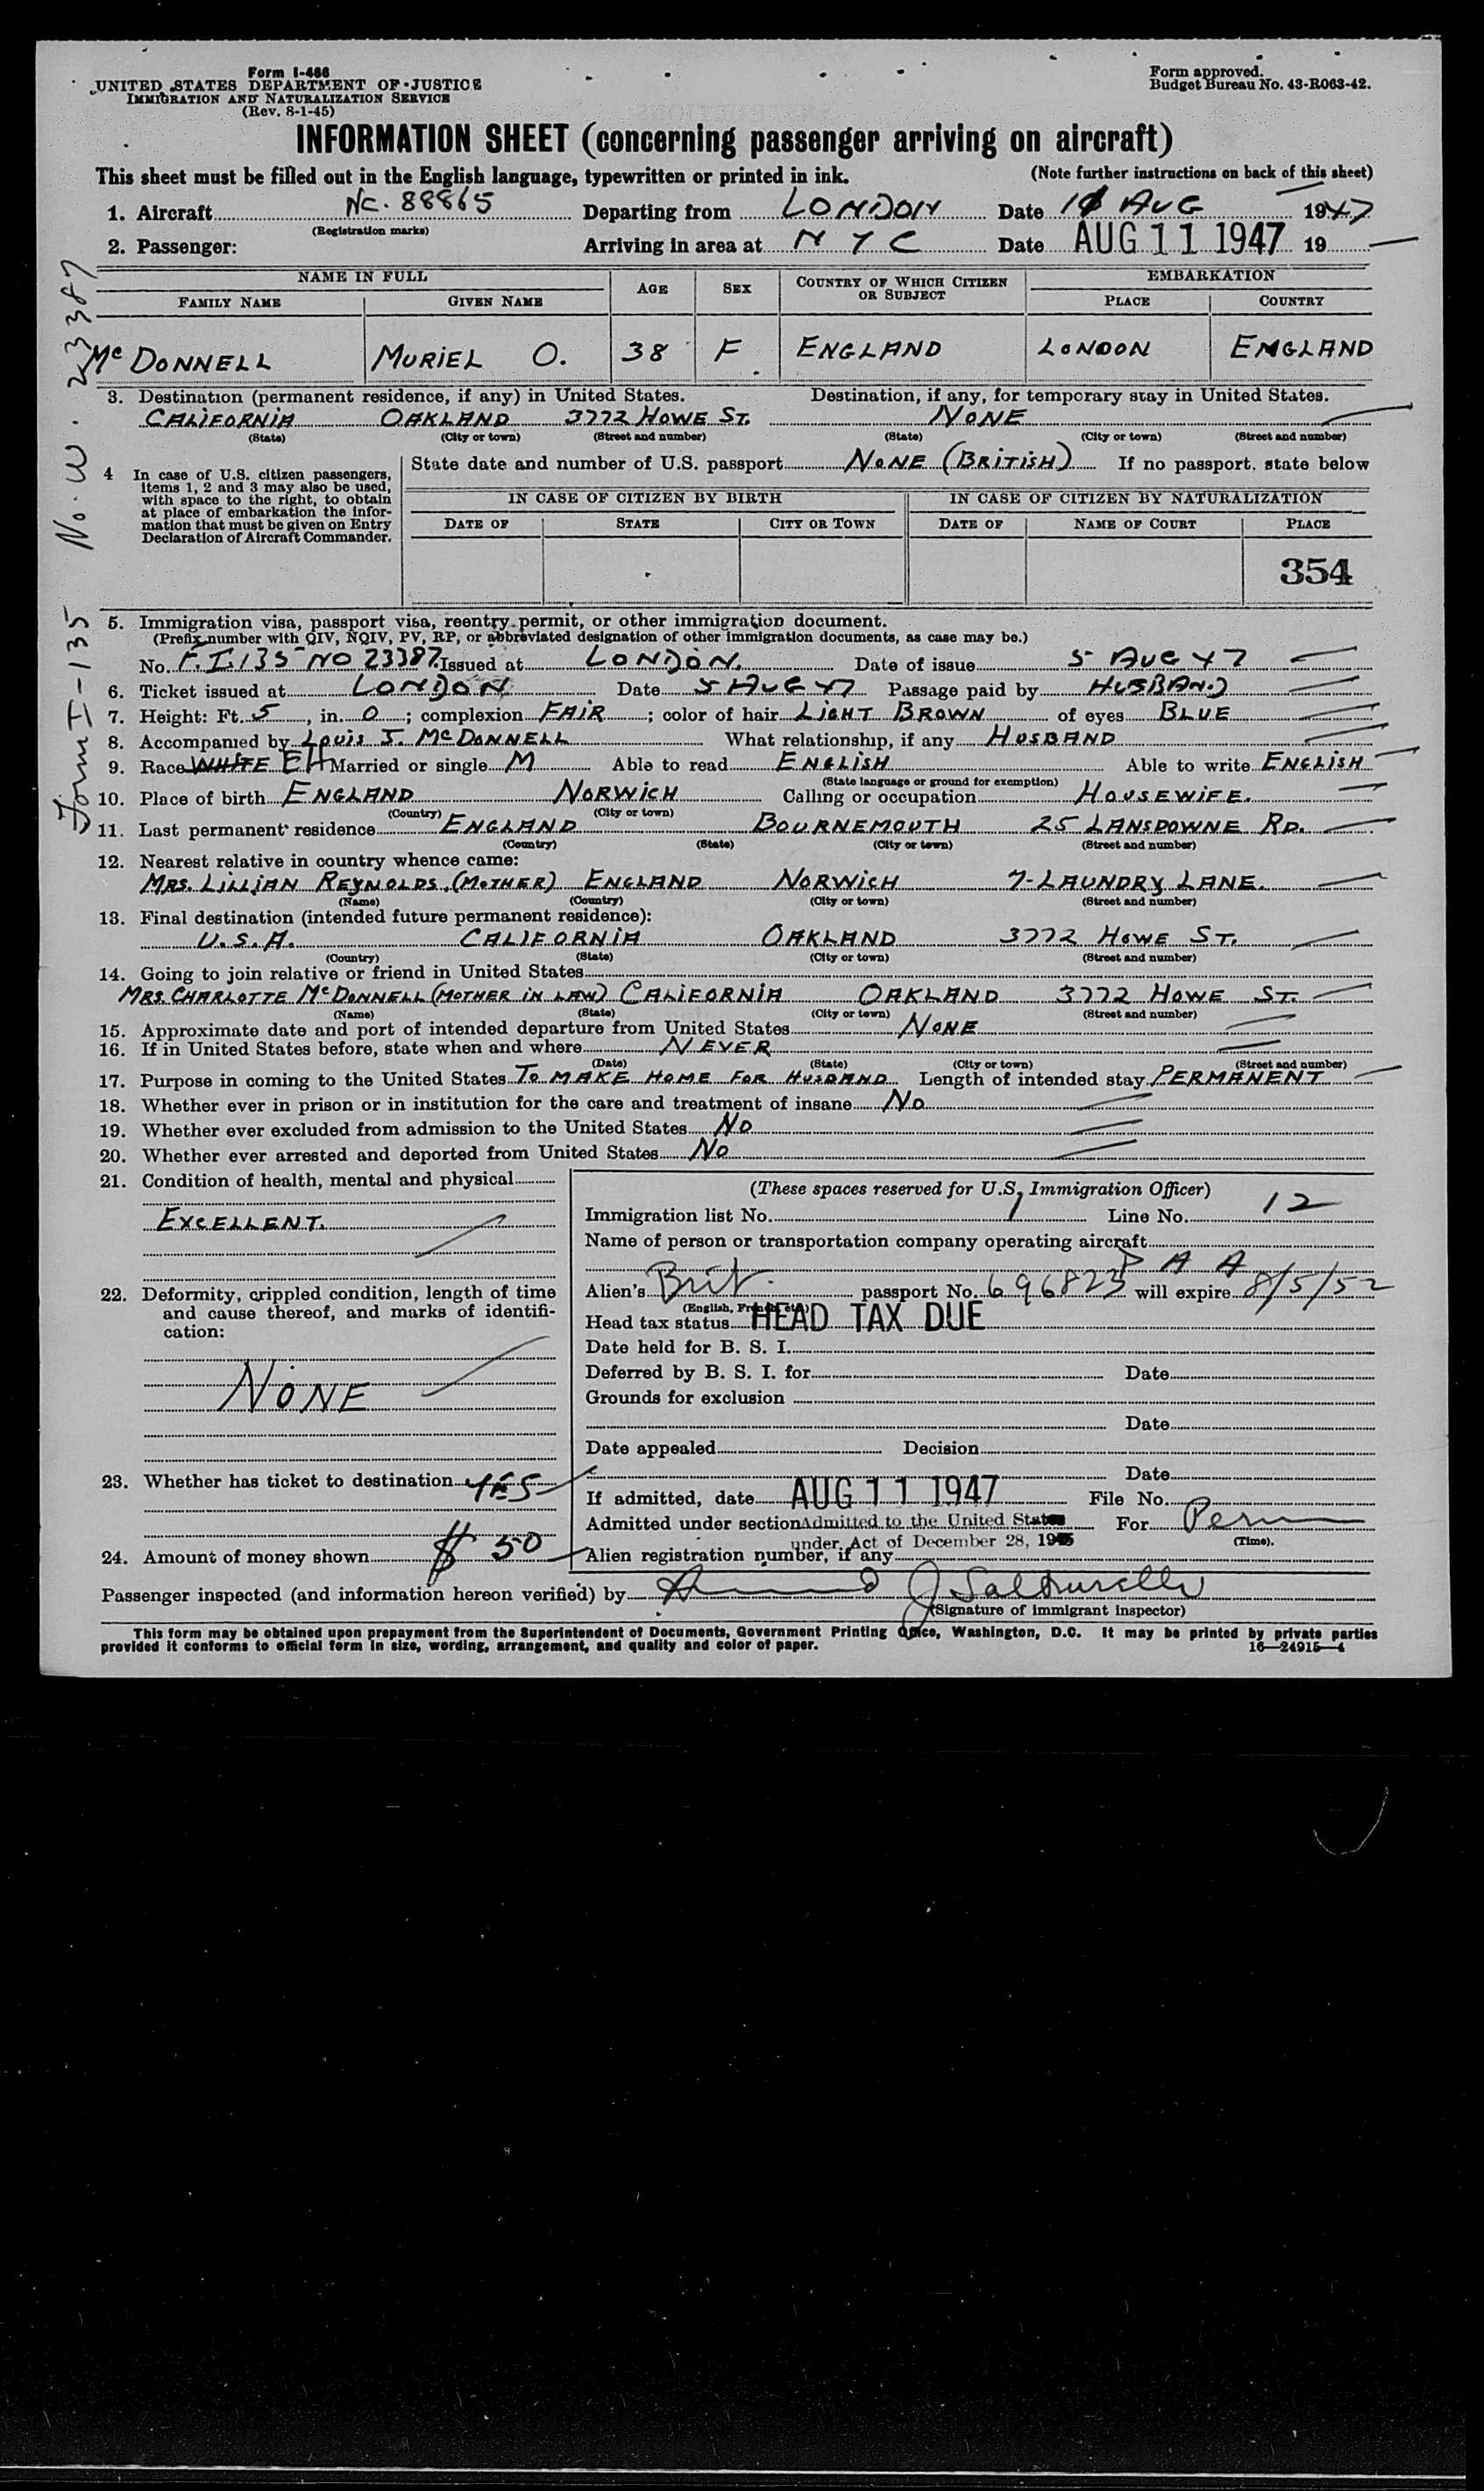 Form I-466
UNITED STATES DEPARTMENT OF JUSTICE
IMMIGRATION AND NATURALIZATION SERVICE
(Rev. 8-1-45)
Form approved.
Budget Bureau No. 43-R063-42.
INFORMATION SHEET (concerning passenger arriving on aircraft)
This sheet must be filled out in the English language, typewritten or printed in ink. (Note further instructions on back of this sheet)
1. Aircraft NC. 88865 Departing from LONDON Date AUG 1947
(Registration marks)
2. Passenger: Arriving in area at N Y C Date AUG 11 1947 19
NAME IN FULL AGE SEX COUNTRY OF WHICH CITIZEN OR SUBJECT EMBARKATION
FAMILY NAME GIVEN NAME PLACE COUNTRY
McDONNELL MURIEL O. 38 F ENGLAND LONDON ENGLAND
3. Destination (permanent residence, if any) in United States. Destination, if any, for temporary stay in United States.
CALIFORNIA OAKLAND 3772 HOWE ST. NONE
(State) (City or town) (Street and number) (State) (City or town) (Street and number)
4 In case of U.S. citizen passengers, items 1, 2 and 3 may also be used, with space to the right, to obtain at place of embarkation the information that must be given on Entry Declaration of Aircraft Commander.
State date and number of U.S. passport NONE (BRITISH) If no passport, state below
IN CASE OF CITIZEN BY BIRTH IN CASE OF CITIZEN BY NATURALIZATION
DATE OF STATE CITY OR TOWN DATE OF NAME OF COURT PLACE
354
Form I-135 No. W. 23387
5. Immigration visa, passport visa, reentry permit, or other immigration document.
(Prefix number with QIV, NQIV, PV, RP, or abbreviated designation of other immigration documents, as case may be.)
No. F.I.135 NO 23387 Issued at LONDON. Date of issue 5 AUG 47
6. Ticket issued at LONDON Date 5 AUG 47 Passage paid by HUSBAND
7. Height: Ft. 5, in. 0; complexion FAIR; color of hair LIGHT BROWN of eyes BLUE
8. Accompanied by LOUIS J. McDONNELL What relationship, if any HUSBAND
9. Race WHITE EH Married or single M Able to read ENGLISH Able to write ENGLISH
(State language or ground for exemption)
10. Place of birth ENGLAND NORWICH Calling or occupation HOUSEWIFE.
(Country) (City or town)
11. Last permanent residence ENGLAND BOURNEMOUTH 25 LANSDOWNE RD.
(Country) (State) (City or town) (Street and number)
12. Nearest relative in country whence came:
MRS. LILLIAN REYNOLDS, (MOTHER) ENGLAND NORWICH 7-LAUNDRY LANE.
(Name) (Country) (City or town) (Street and number)
13. Final destination (intended future permanent residence):
U.S.A. CALIFORNIA OAKLAND 3772 HOWE ST.
(Country) (State) (City or town) (Street and number)
14. Going to join relative or friend in United States
MRS. CHARLOTTE McDONNELL (MOTHER IN LAW) CALIFORNIA OAKLAND 3772 HOWE ST.
(Name) (State) (City or town) (Street and number)
15. Approximate date and port of intended departure from United States NONE
16. If in United States before, state when and where NEVER
(Date) (State) (City or town) (Street and number)
17. Purpose in coming to the United States TO MAKE HOME FOR HUSBAND Length of intended stay PERMANENT
18. Whether ever in prison or in institution for the care and treatment of insane NO
19. Whether ever excluded from admission to the United States NO
20. Whether ever arrested and deported from United States NO
21. Condition of health, mental and physical
EXCELLENT.
22. Deformity, crippled condition, length of time
and cause thereof, and marks of identifi-
cation:
NONE
23. Whether has ticket to destination YES
24. Amount of money shown $ 50
(These spaces reserved for U.S. Immigration Officer)
Immigration list No. 1 Line No. 12
Name of person or transportation company operating aircraft
P A A
Alien's Brit. passport No. 696823 will expire 8/5/52
(English, French, etc.)
Head tax status HEAD TAX DUE
Date held for B. S. I.
Deferred by B. S. I. for Date
Grounds for exclusion
Date
Date appealed Decision
Date
If admitted, date AUG 11 1947 File No.
Admitted under section Admitted to the United States For Perm
under Act of December 28, 1945 (Time).
Alien registration number, if any
Passenger inspected (and information hereon verified) by
(Signature of immigrant inspector)
This form may be obtained upon prepayment from the Superintendent of Documents, Government Printing Office, Washington, D.C. It may be printed by private parties
provided it conforms to official form in size, wording, arrangement, and quality and color of paper. 16—24915-4